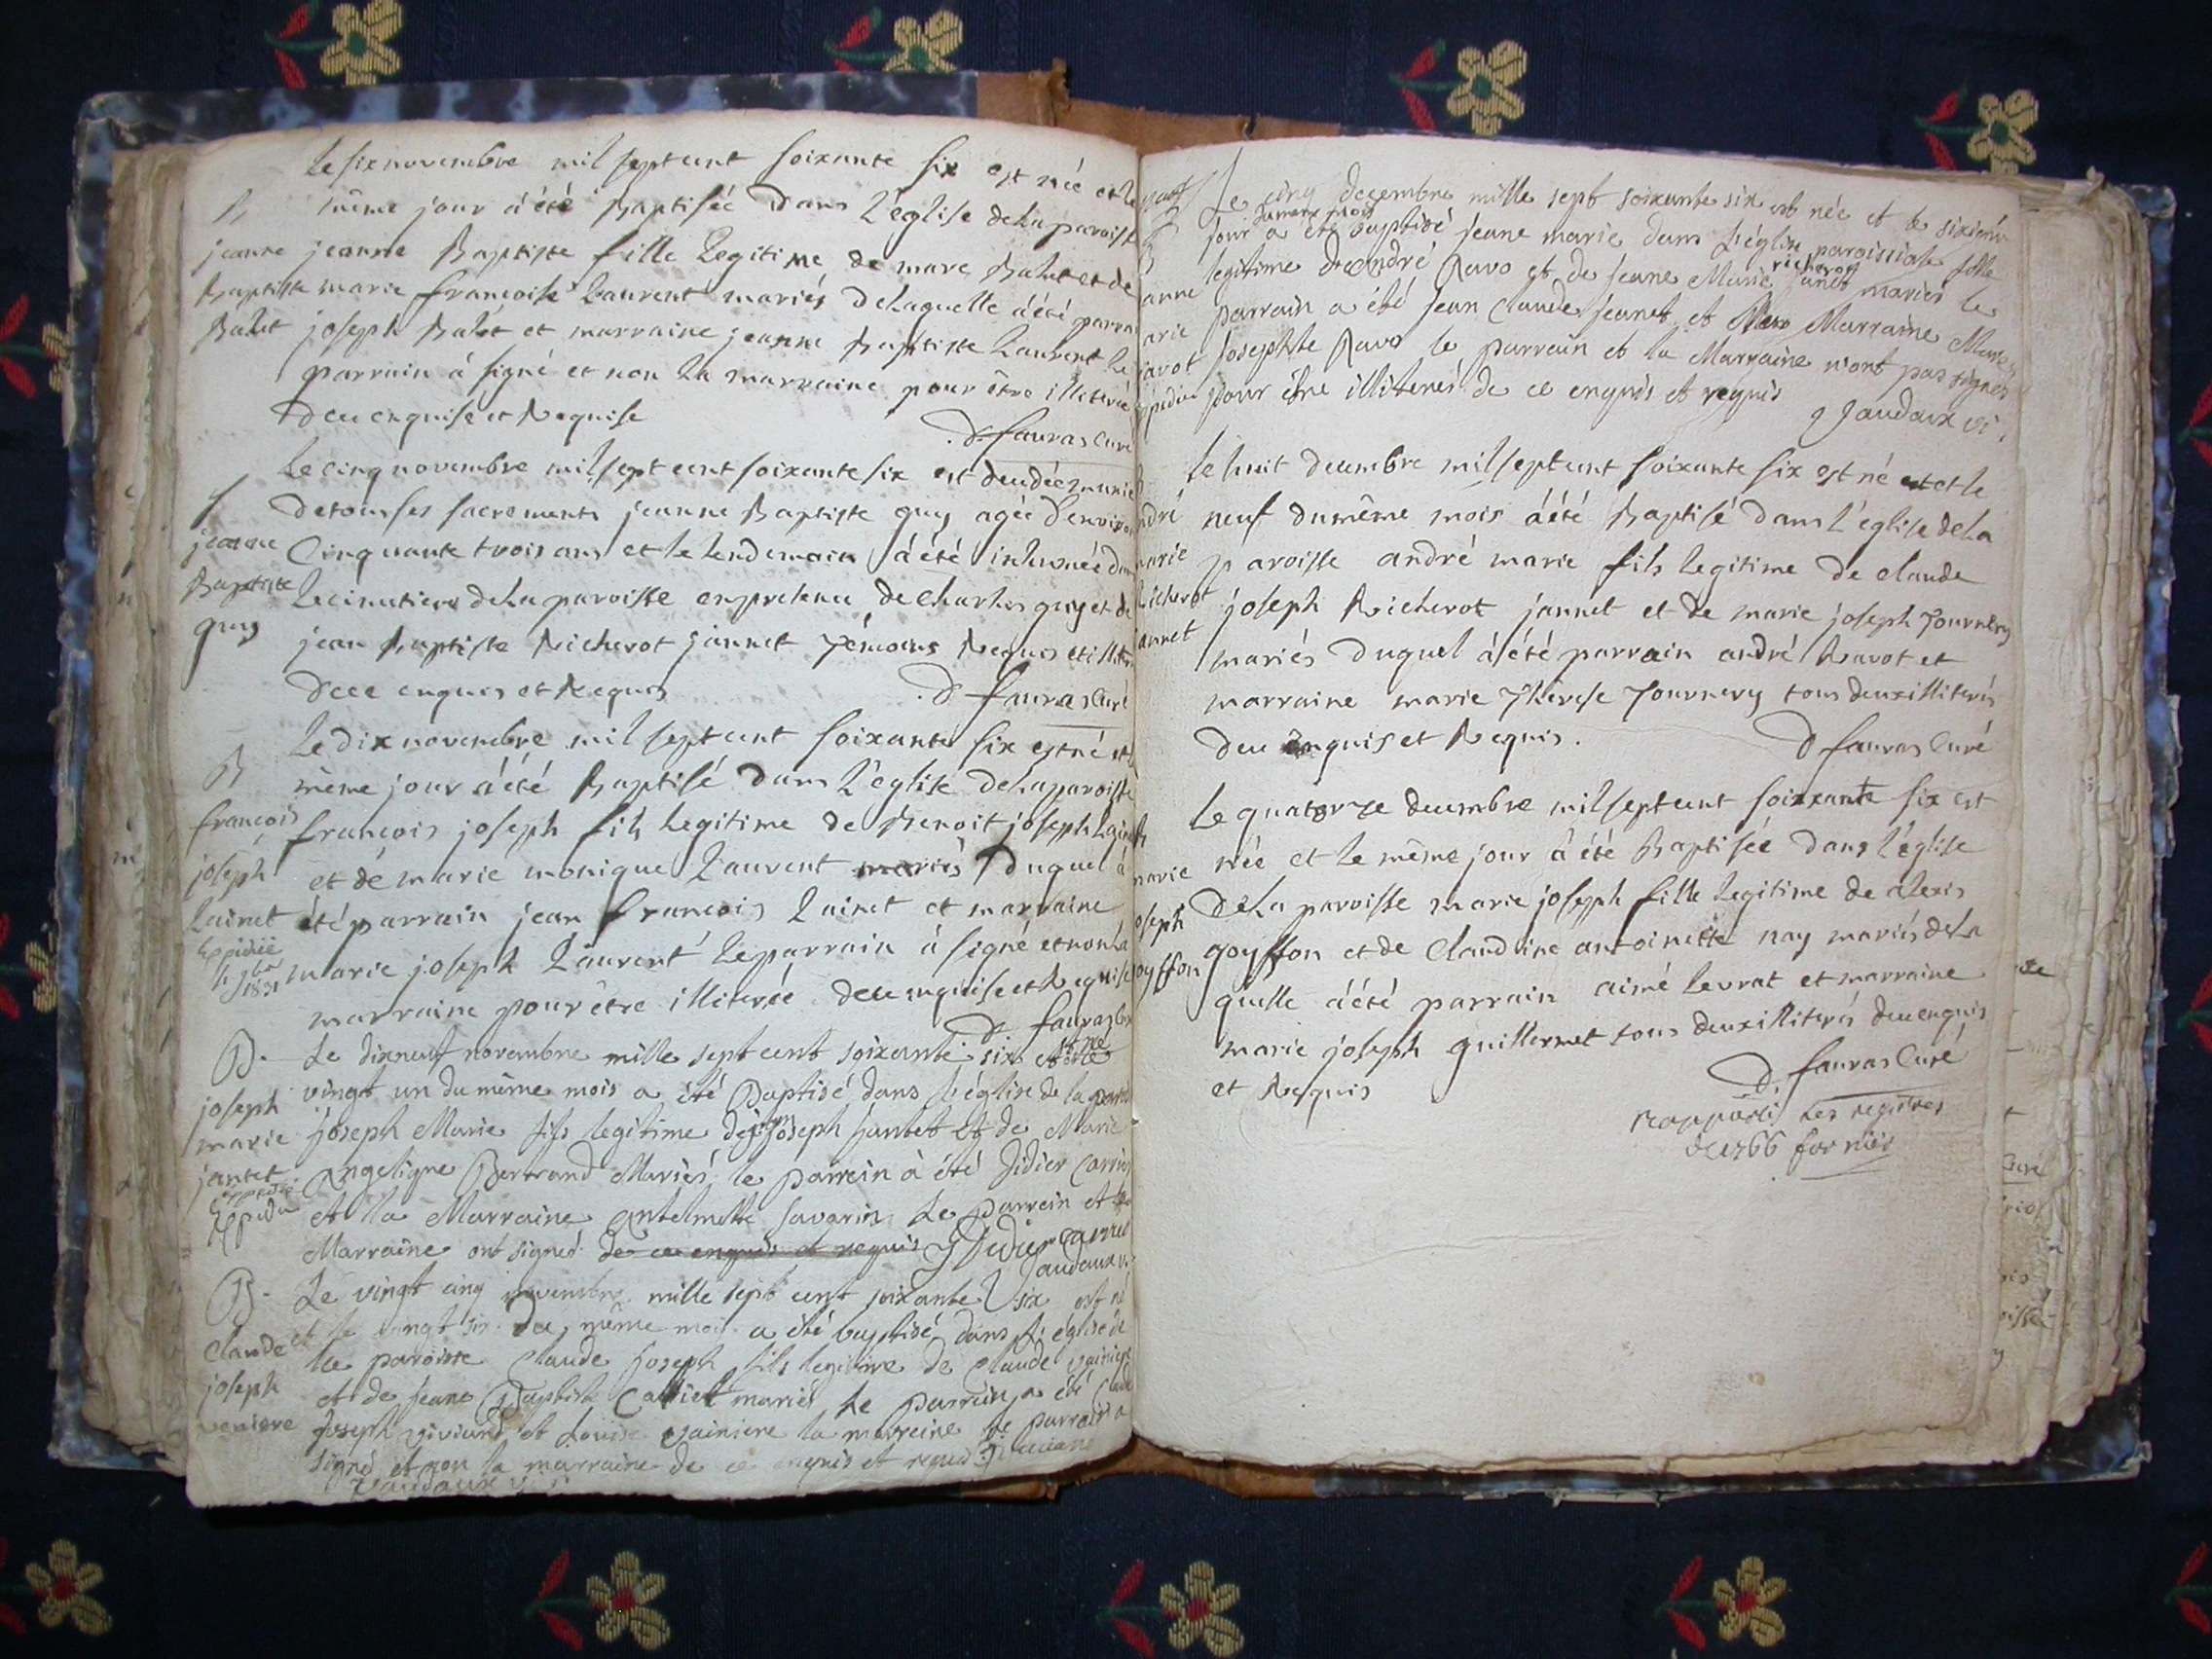 Le six novembre mil sept cent soixante six est née et le
B même jour a été Baptisée dans l'église de la paroisse
jeanne jeanne Baptiste fille legitime de marc Balut et de
Baptiste marie françoise Laurent mariés de laquelle a été parrain
Balut joseph Balut et marraine jeanne Baptiste Laurent le
parrain à signé et non la marraine pour être illiterée
de ce enquise et Requise
D. fauras Curé
Le cinq novembre mil sept cent soixante six est decedée munie
de tous ses sacrements jeanne Baptiste guy agée d'environ
jeanne Cinquante trois ans et le lendemain a été inhumée dans
Baptiste le cimetiere de la paroisse en presence de Charles guy et de
guy jean Baptiste Richerot jannet témoins Requis et illiterés
de ce enquis et Requis
D fauras Curé
Le dix novembre mil sept cent soixante six est né et le
B même jour a été Baptisé dans l'église de la paroisse
françois françois joseph fils legitime de Benoit joseph Lainet
joseph et de marie monique Laurent mariés duquel à
Lainet été parrain jean françois Lainet et marraine
Expédié marie joseph Laurent le parrain à signé et non la
1831
marraine pour être illiterée de ce enquise et Requise
D. fauras Curé
B. Le dixneuf novembre mille sept cent soixante six est né et le
joseph vingt un du même mois a été Baptisé dans l'église de la paroisse
marie Joseph Marie fils legitime de joseph Jantet et de Marie
jantet Angelique Bertrand Mariés le parrein à été Didier
Expedié et la Marraine Antelmette Savarin Le parrein et la
Marraine ont signed de ce enquis et requis Didier
Jaudaux vi.
B. Le vingt cinq novembre mille sept cent soixante six est né
et le vingt six du même mois a été baptisé dans l'église de
Claude la paroisse Claude Joseph fils legitime de Claude vainiere
joseph et de Jeane Baptiste mariés Le parrein a été Claude
veniere Joseph et Louise vainiere la marreine le parrain a
signé et non la marraine de ce enquis et requis
Jaudaux
Le cinq decembre mille sept soixante six est née et le sixieme
jour du meme mois a été baptisé Jeane marie dans l'église paroissiale fille
anne legitime d'andré Ravo et de Jeane Marie richerot janet mariés le
arie parrain a été Jean Claude Jeanet et Marraine Marie
ravot Josephte Ravo le parrain et la Marraine n'ont pas signés
pour être illiterés de ce enquis et requis
Jaudaux vi.
Le huit decembre mil sept cent soixante six est né et le
ndré neuf du même mois a été Baptisé dans l'église de la
marie paroisse andré marie fils legitime de claude
Richerot joseph Richerot jannet et de marie joseph Tournery
jannet mariés duquel à été parrain andré Ravot et
marraine marie Thérèse Tournery tous deux illiterés
de ce enquis et Requis.
D fauras Curé
Le quatorze decembre mil sept cent soixxante six est
née et le même jour à été Baptisée dans l'église
marie de la paroisse marie joseph fille legitime de alexis
oseph goyffon et de Claudine antoinette nay mariés de la
oyffon quelle à été parrain aimé levrat et marraine
marie joseph guillermet tous deux illiterés de ce enquis
et Requis
D. fauras Curé
rapporté Les registres
de 1766 fornier